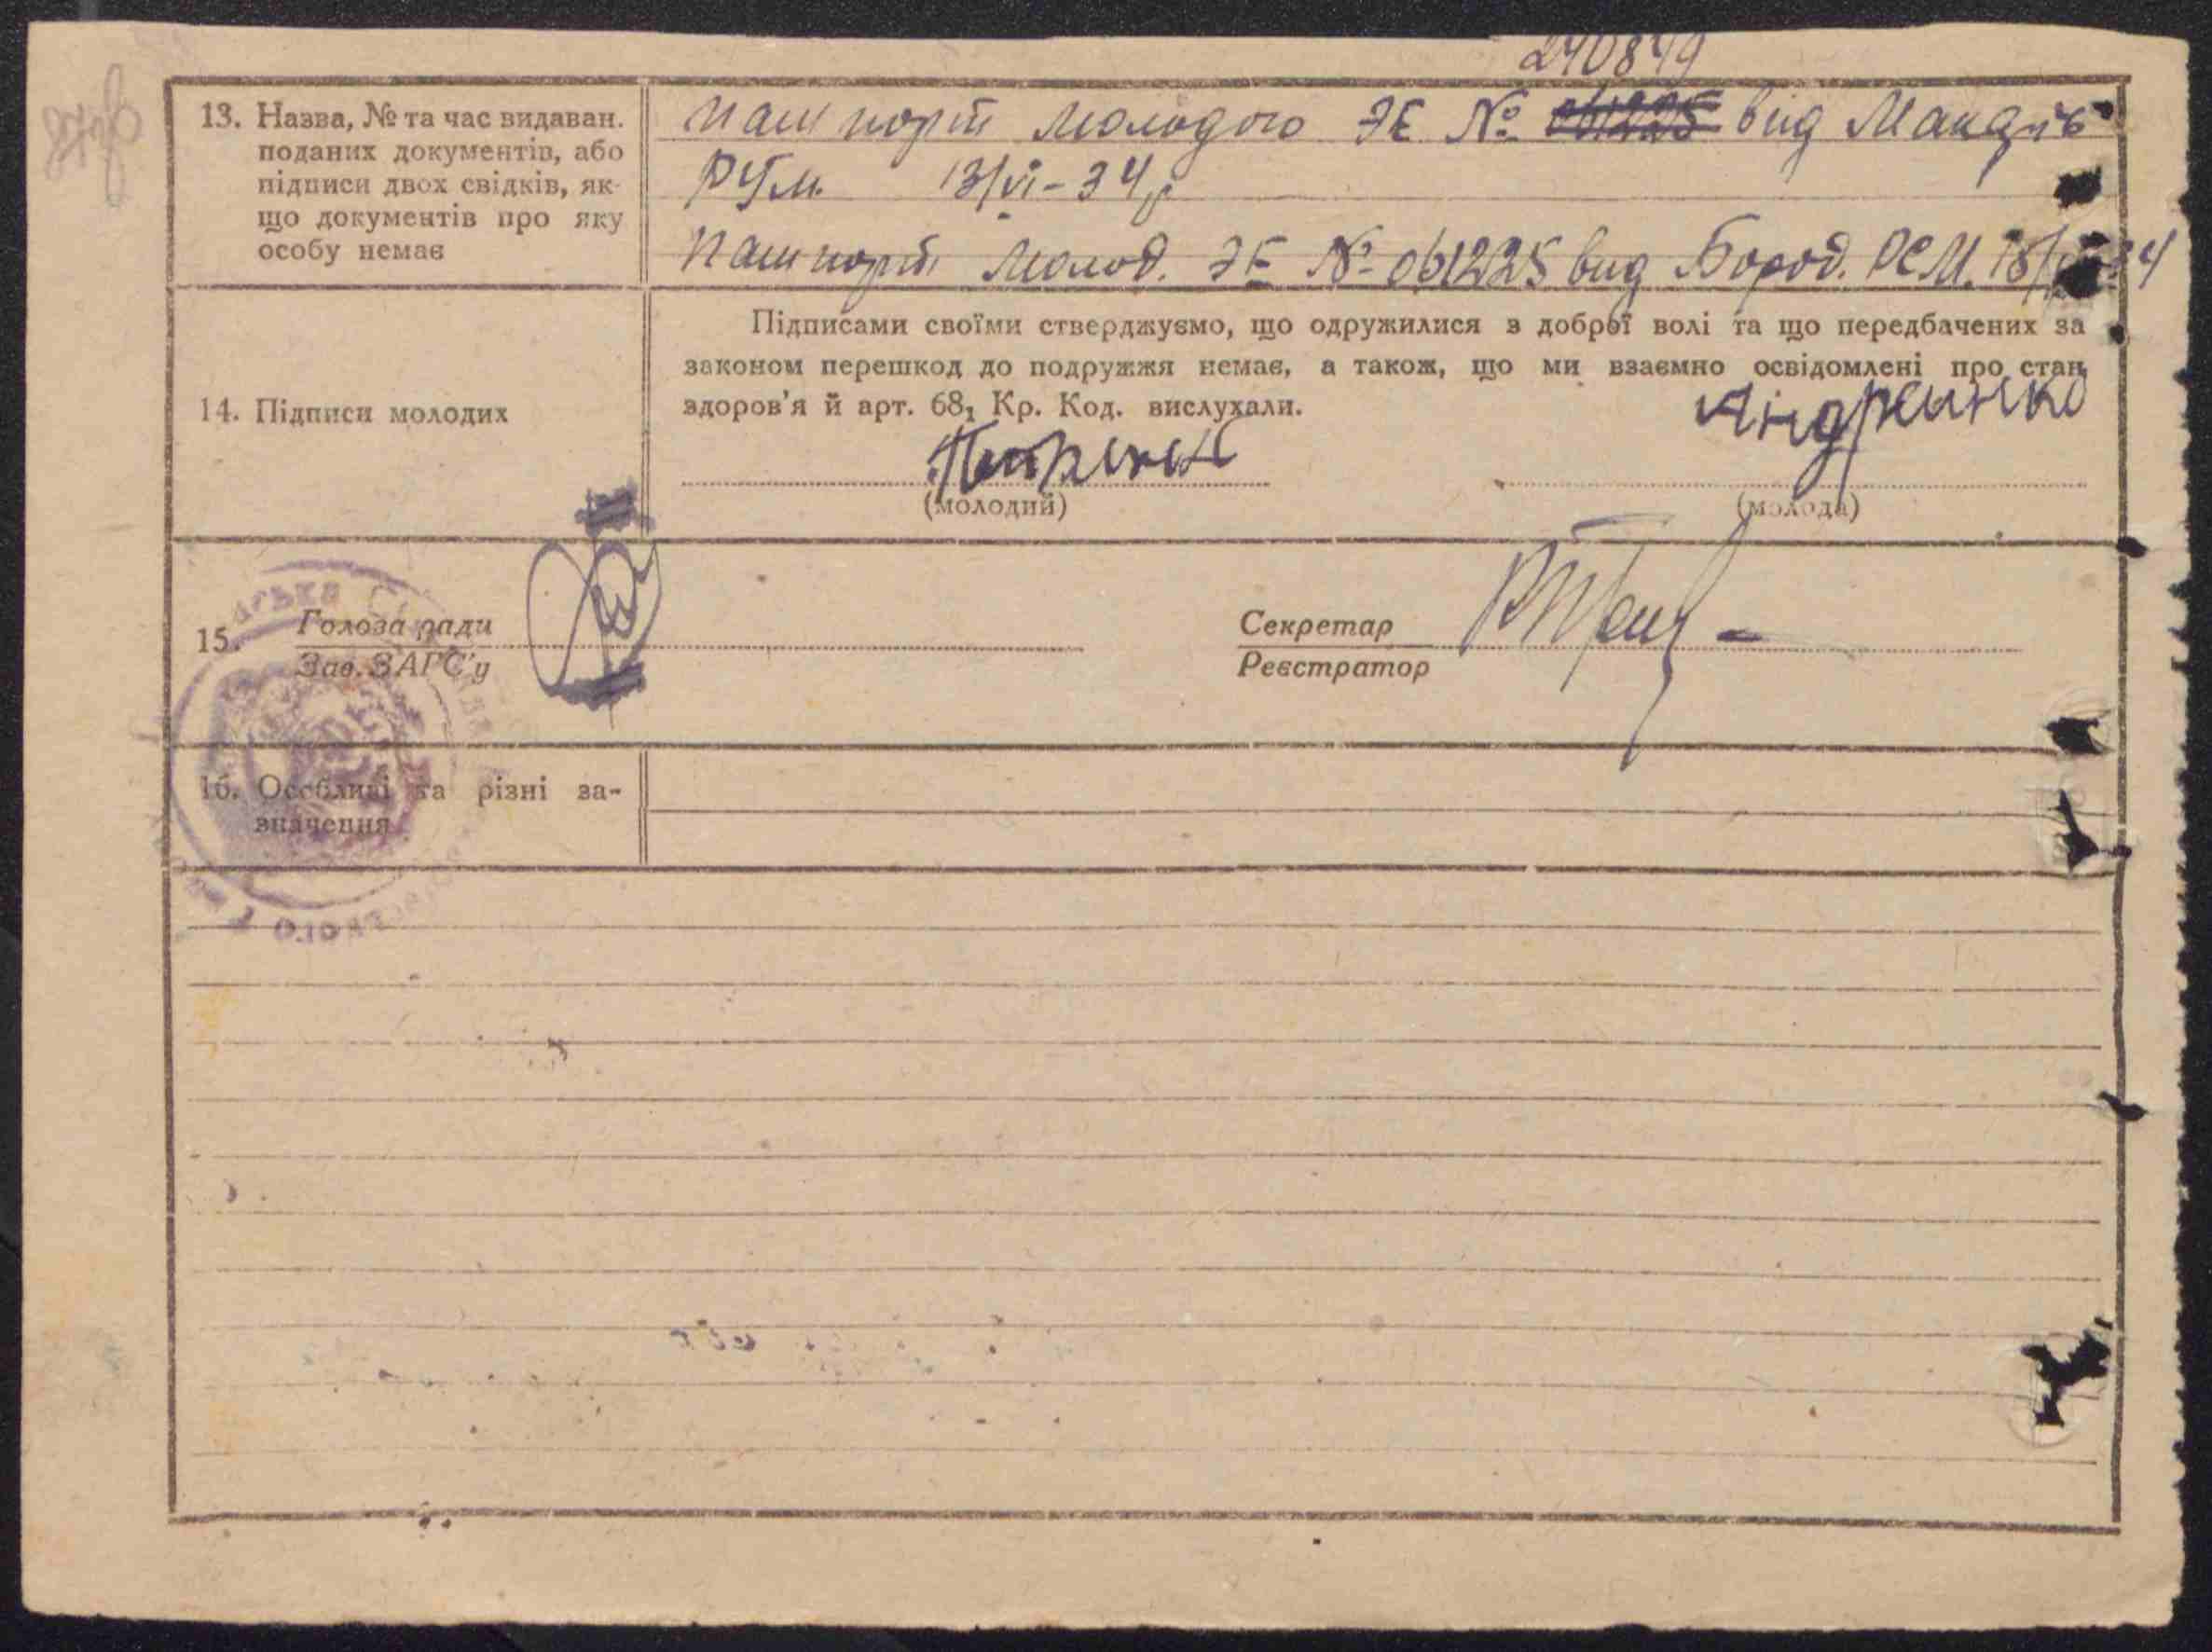 240849
13. Назва, № та час видаван.
поданих документів, або
підписи двох свідків, як-
що документів про яку
особу немає
Пашпорт молодого ЭЕ № 061225 від
РУМ. 13/VI-34р
Пашпорт молод. ЭЕ № 061225 від Бород. РСМ. 18/
14. Підписи молодих
Підписами своїми стверджуємо, що одружилися з доброї волі та що передбачених за
законом перешкод до подружжя немає, а також, що ми взаємно освідомлені про стан
здоров'я й арт. 68₁ Кр. Код. вислухали.
Андреинко
(молодий)
(молода)
15. Голова ради
Зав. ЗАГС'у
Секретар
Реєстратор
16. Особливі та різні за-
значення